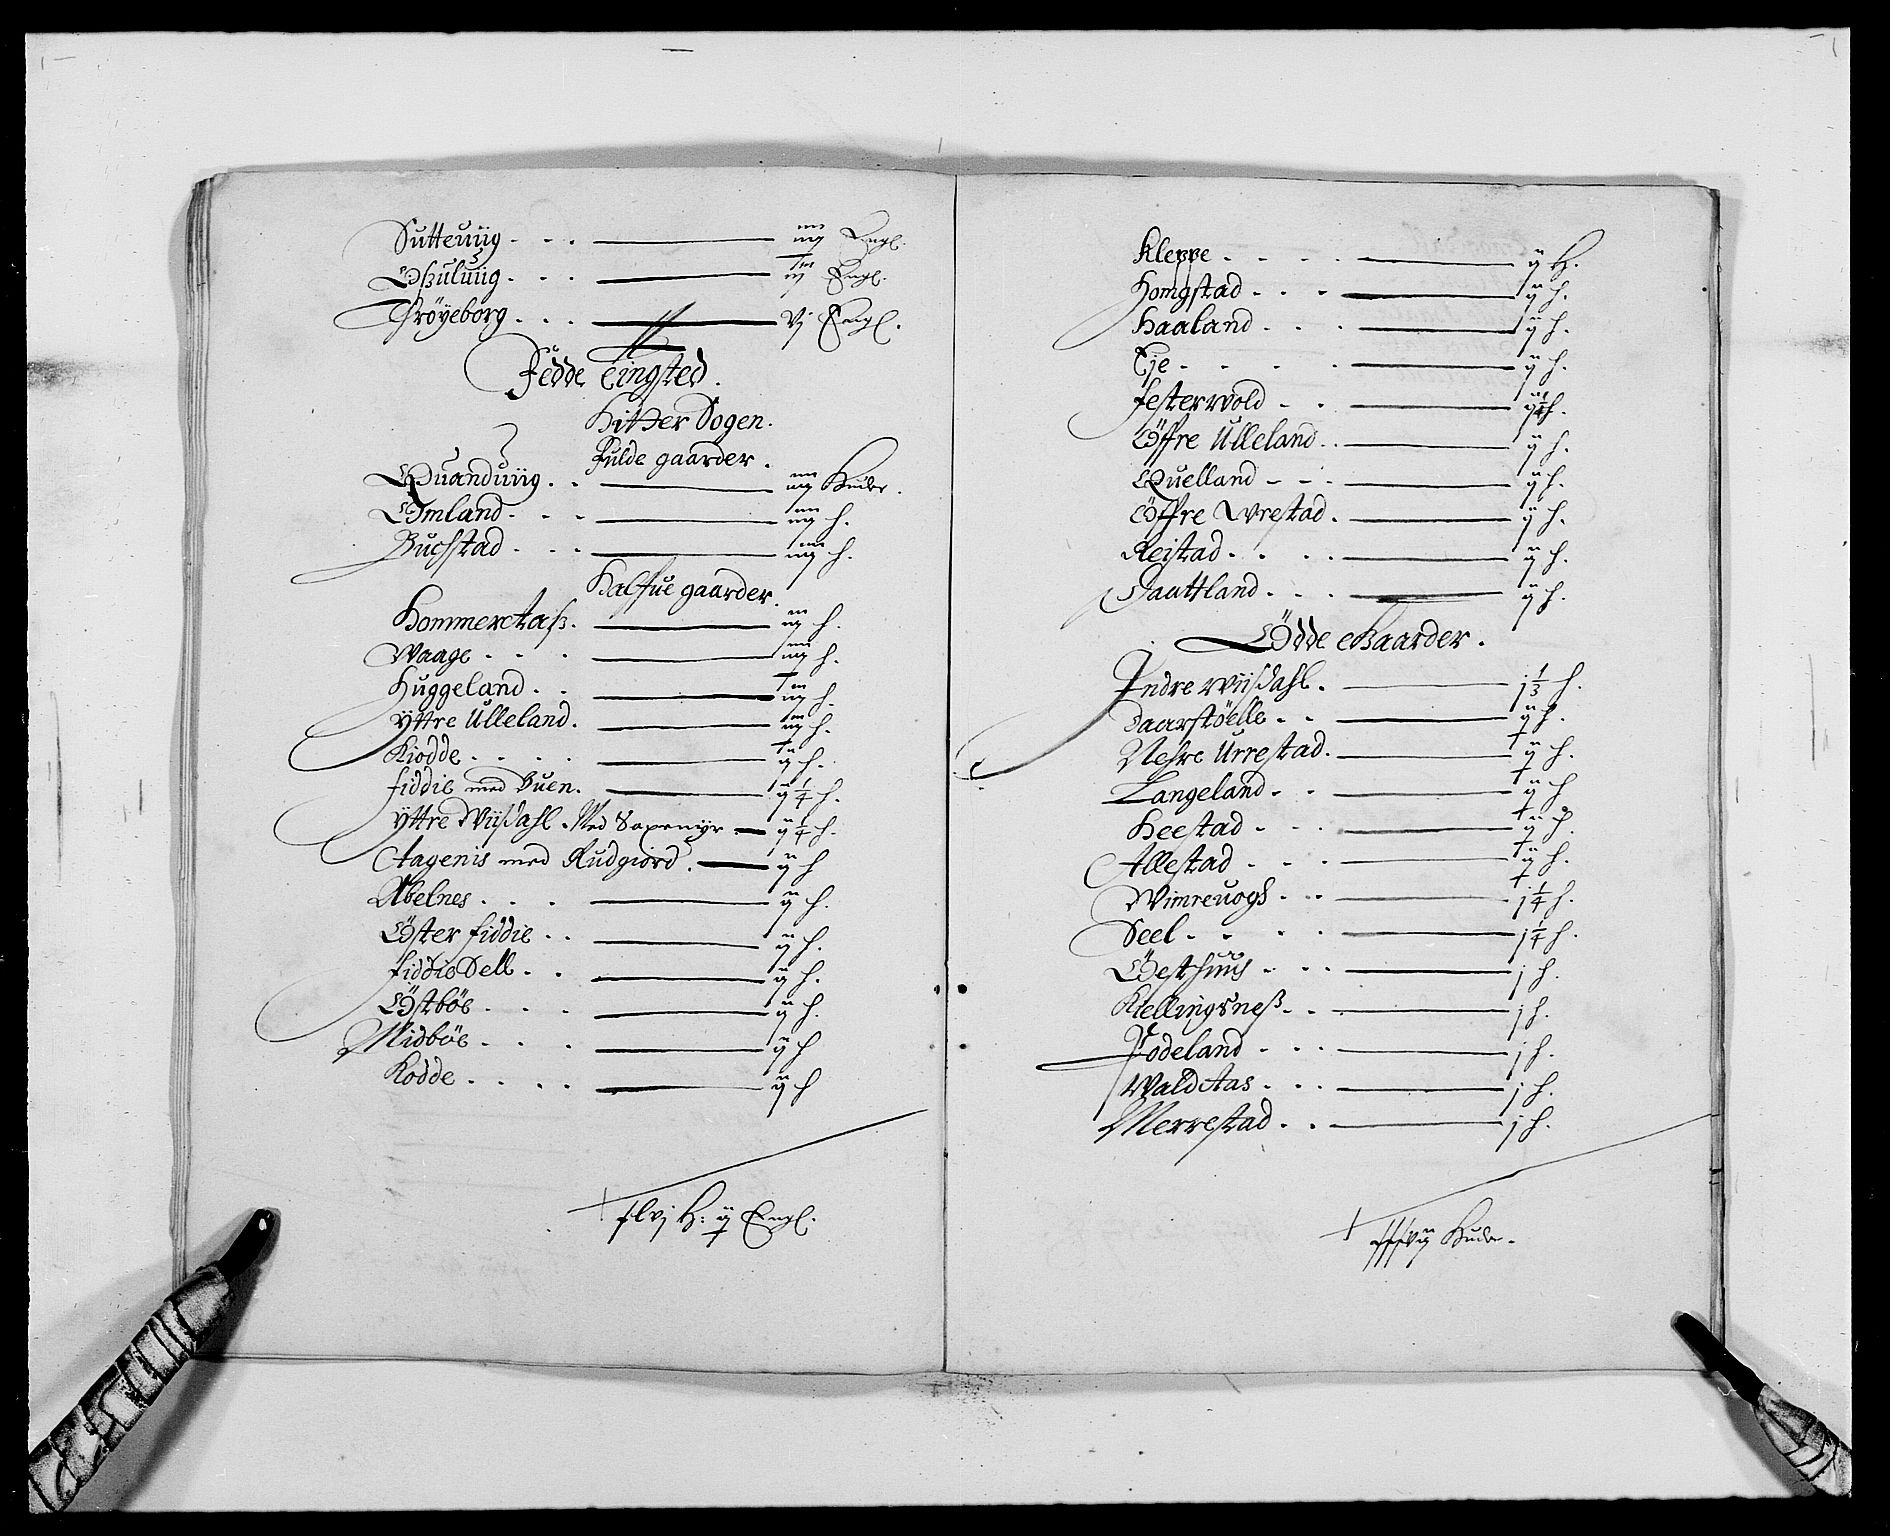 Sutteuiig - - - iiij Engl.
Øßuluiig - - - iij Engl.
Trøyeborg - - - vj Engl.
Fedde Tingsted.
Hitter Sogen.
Fulde gaarder.
Quanduiig - - iiij Huder.
Omland - - - iiij h.
Buchstad - - - iiij h.
Halfue gaarder.
Hommer Aaß. iij h.
Waage - - - iiij h.
Huggeland - - iij h.
Yttre Ulleland. iij h.
Kiodde - - - - ij h.
Fiddie med Buen. ij ¼ h.
Yttre Wiisdahl. Med Saxemyr ij ¼ h.
Aagenis med Rudgiord. ij h
Abelnes - - - ij h.
Øster fiddie - - ij h.
Fiddie Sell - - ij h.
Østbøe - - - ij h.
Midbøe - - - ij h
Rødde - - - - ij h
xlvj H: ij Engl.
Kleppe - - - - ij H.
Homgstad - - - ij h.
Haaland - - - ij h.
Eje - - - - ij h.
Festervold - - ij ¼ h.
Øffre Ulleland - ij h.
Quelland - - - ij h.
Øffre Wrestad. ij h.
Reistad - - - - ij h.
Saattland - - - ij h.
Ødde Gaarder.
Indre Wiisdahl. j ⅓ h.
Daarstøelle - - ij h.
Nehre Urrestad. ij h.
Langeland - - ij h
Heestad - - - ij h.
Allestad - - - ij h.
Wimreuogh - - j ¼ h.
Seel - - - - j ¼ h.
Øesthuus - - - j h.
Kiellingsneß - - j h.
Podeland - - - j h.
Wald Aas - - - j h.
Merrestad - - j h.
xxxvij Huder.